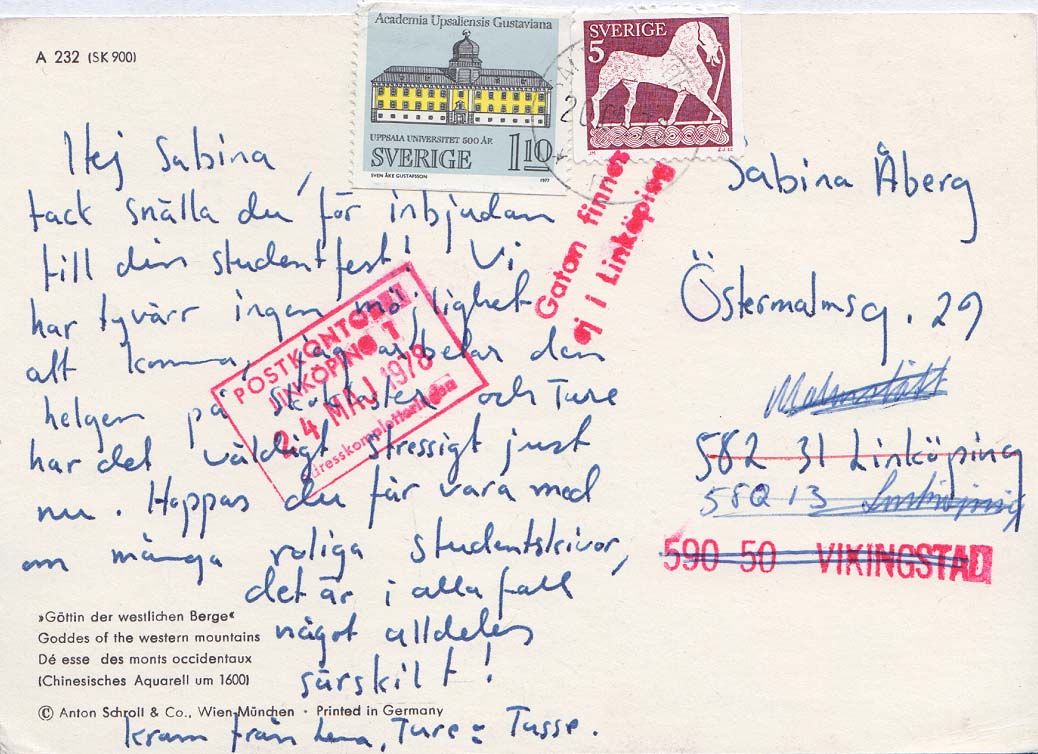 A 232 (SK 900)
Academia Upsaliensis Gustaviana
UPPSALA UNIVERSITET 500 ÅR
SVERIGE 1 10
SVEN ÅKE GUSTAFSSON 1977
SVERIGE
5
Hej Sabina,
tack snälla du, för inbjudan
till din studentfest! Vi
har tyvärr ingen möjlighet
att komma, jag arbetar den
helgen på och Ture
har det väldigt stressigt just
nu. Hoppas du får vara med
om många roliga studentskivor,
det är i alla fall
något alldeles
särskilt!
kram från Lena, Ture = Tusse.
Gatan finnes
ej i Linköping
POSTKONTORET
LINKÖPING 1
24 MAJ 1978
Adresskompletteringen
Sabina Åberg
Östermalmsg. 29
Malmslätt
582 31 Linköping
582 13 Linköping
590 50 VIKINGSTAD
»Göttin der westlichen Berge«
Goddes of the western mountains
Dé esse des monts occidentaux
(Chinesisches Aquarell um 1600)
© Anton Schroll & Co., Wien-München · Printed in Germany